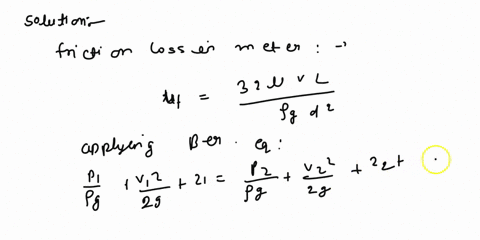 Solution:-
friction loss in meter: →
Hf = 32 μ v L / ρg d²
applying Ber. eq:
P1/ρg + V1²/2g + Z1 = P2/ρg + V2²/2g + Z2 +